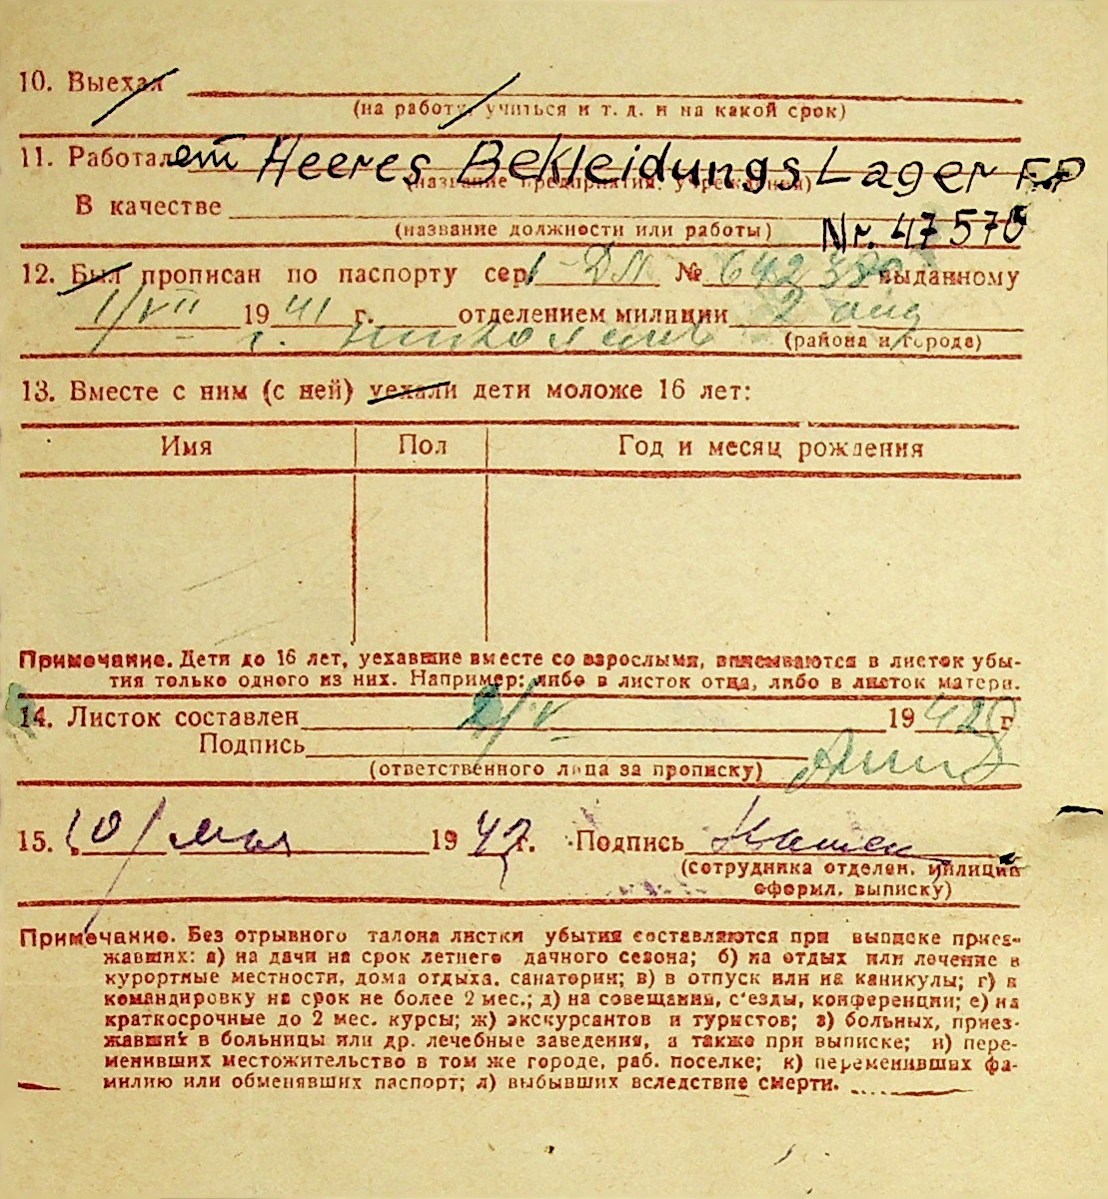 10. Выехал
(на работу, учиться и т. д. и на какой срок)
11. Работал em Heeres Bekleidungs Lager F.P
(название предприятия, учреждения)
В качестве Nr. 47570
(название должности или работы)
12. Был прописан по паспорту сер. I-ДЛ № 642380 выданному
1/VII 1941 г. отделением милиции 2 отд
г. Николаев (района и города)
13. Вместе с ним (с ней) уехали дети моложе 16 лет:
Имя Пол Год и месяц рождения
Примечание. Дети до 16 лет, уехавшие вместе со взрослыми, вписываются в листок убы-
тия только одного из них. Например: либо в листок отца, либо в листок матери.
14. Листок составлен 2/V 1942 г
Подпись
(ответственного лица за прописку)
15. 10/ мая 1942 г. Подпись
(сотрудника отделен. милиции
оформл. выписку)
Примечание. Без отрывного талона листки убытия составляются при выписке приез-
жавших: а) на дачи на срок летнего дачного сезона; б) на отдых или лечение в
курортные местности, дома отдыха, санатории; в) в отпуск или на каникулы; г) в
командировку на срок не более 2 мес.; д) на совещания, с'езды, конференции; е) на
краткосрочные до 2 мес. курсы; ж) экскурсантов и туристов; з) больных, приез-
жавших в больницы или др. лечебные заведения, а также при выписке; и) пере-
менивших местожительство в том же городе, раб. поселке; к) переменивших фа-
милию или обменявших паспорт; л) выбывших вследствие смерти.